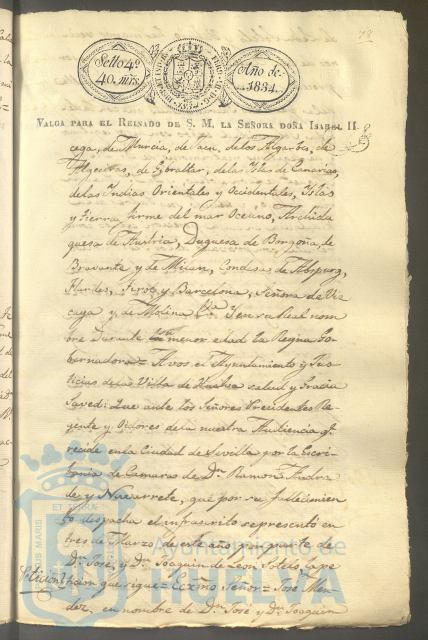 78
Sello 4º
40. mrs.
Año de
1834.
VALGA PARA EL REINADO DE S. M. LA SEÑORA DOÑA ISABEL II.
cega, de Murcia, de Jaen, de los Algarbes, de
Algeciras, de Gibraltar, de las Yslas de Canarias,
de las Yndias Orientales y Occidentales, Yslas
y tierra firme del mar Oceano, Archidu
quesa de Austria, Duquesa de Borgoña, de
Bravante y de Milan, Condesa de Abspurg,
Flandes, Tirol y Barcelona, Señora de Viz
caya y de Molina &ª Y en su Real nom
bre durante su menor edad la Reyna Go
bernadora = A vos el Ayuntamiento y Jus
ticias de la Villa de Huelva salud y gracia
Saved: Que ante los Señores Presidentes Re
gente y Oydores de la nuestra Audiencia qe
reside en la Ciudad de Sevilla por la Escri
bania de Camara de Dn Ramon
de y Navarrete, que por su fallecimien
to despacha el infrascrito represento en
tres de Marzo de este año por parte de
Dn José, y Dn Joaquin de Leon Sotelo la pe
Peticion ticion que sigue = Exmo Señor = José Men
dez, en nombre de Dn José y Dn Joaquin
Ayuntamiento de
HUELVA
PORTUS MARIS
ET TERRAE